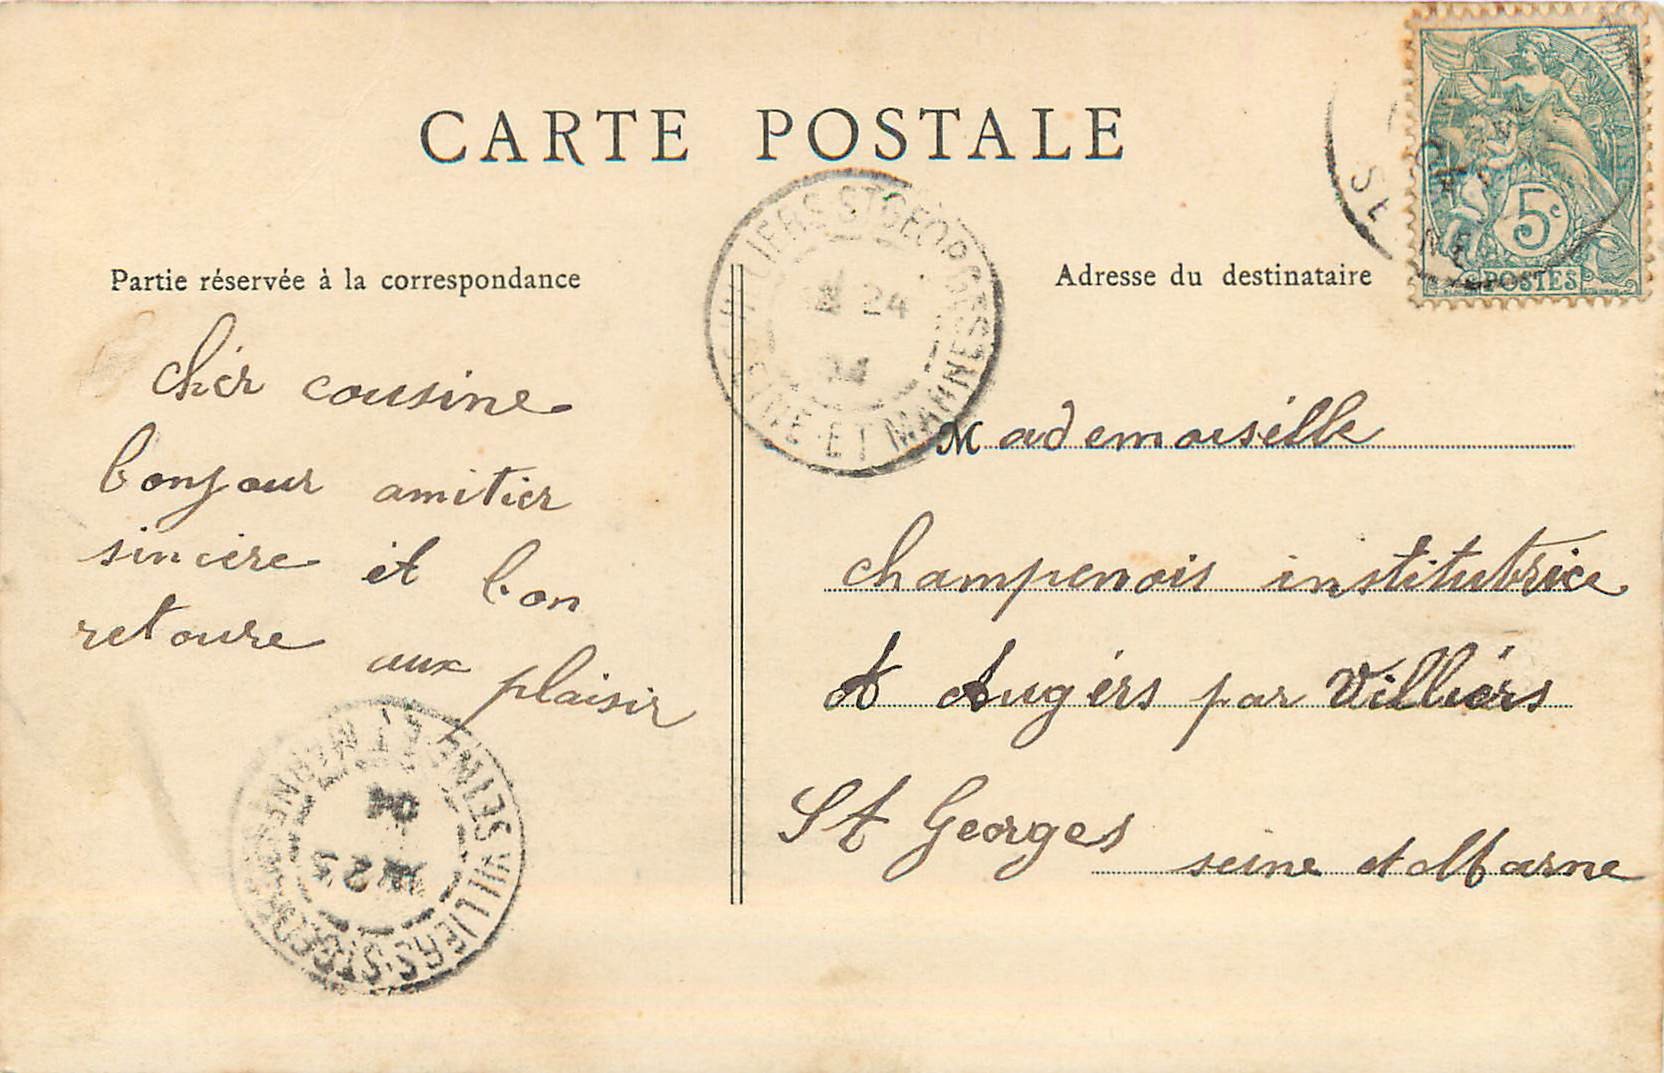 CARTE POSTALE
Partie réservée à la correspondance
Adresse du destinataire
5c
POSTES
SEINE
VILLIERS ST GEORGES
24
04
SEINE-ET-MARNE
cher cousine
bonjour amitier
sincère et bon
retoure aux plaisir
Mademoiselle
champenois institutrice
A Augérs par Villiérs
St Georges
seine et Marne
VILLIERS-ST-GEORGES
23
04
SEINE-ET-MARNE